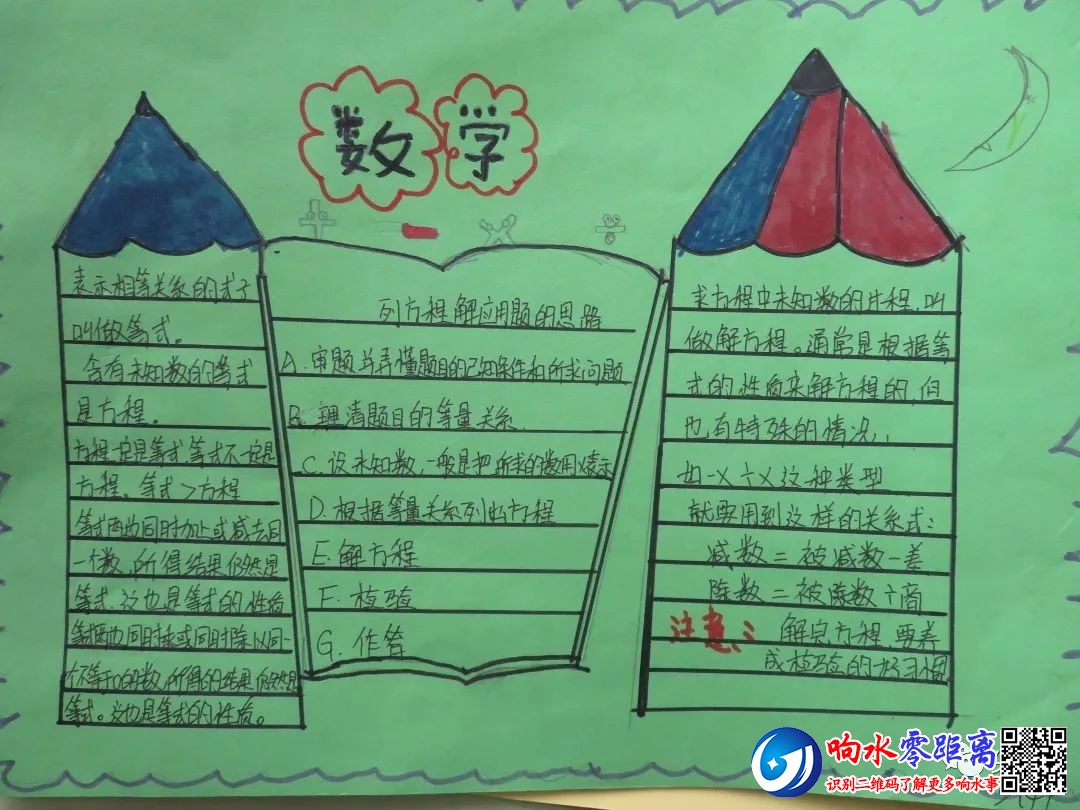 数学
表示相等关系的式子
叫做等式。
含有未知数的等式
是方程。
方程一定是等式,等式不一定是
方程。等式>方程
等式两边同时加上或减去同
一个数,所得结果仍然是
等式.这也是等式的性质
等式两边同时乘或同时除以同一
个不等于0的数,所得的结果仍然是
等式。这也是等式的性质。
列方程解应用题的思路
A.审题并弄懂题目的已知条件和所求问题
B.理清题目的等量关系.
C.设未知数,一般是把所求的数用X表示
D.根据等量关系列出方程
E.解方程
F.检验
G.作答
求方程中未知数的过程,叫
做解方程。通常是根据等
式的性质来解方程的,但
也有特殊的情况,
如-X÷X这种类型
就要用到这样的关系式:
减数=被减数-差
除数=被除数÷商
注意: 解完方程,要养
成检验的好习惯
响水零距离
识别二维码了解更多响水事